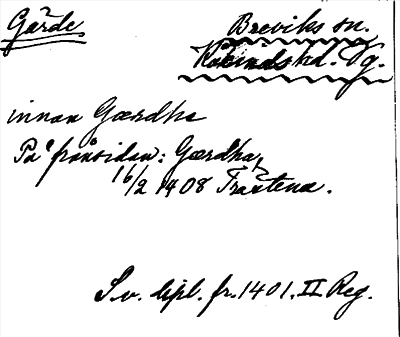 Gärde
Breviks sn.
Kåkinds hd. Vg.
innan Gærdha
På frånsidan: Gærdha,
16/2 1408 Frantena.
S.v. dipl. fr. 1401. II Reg.